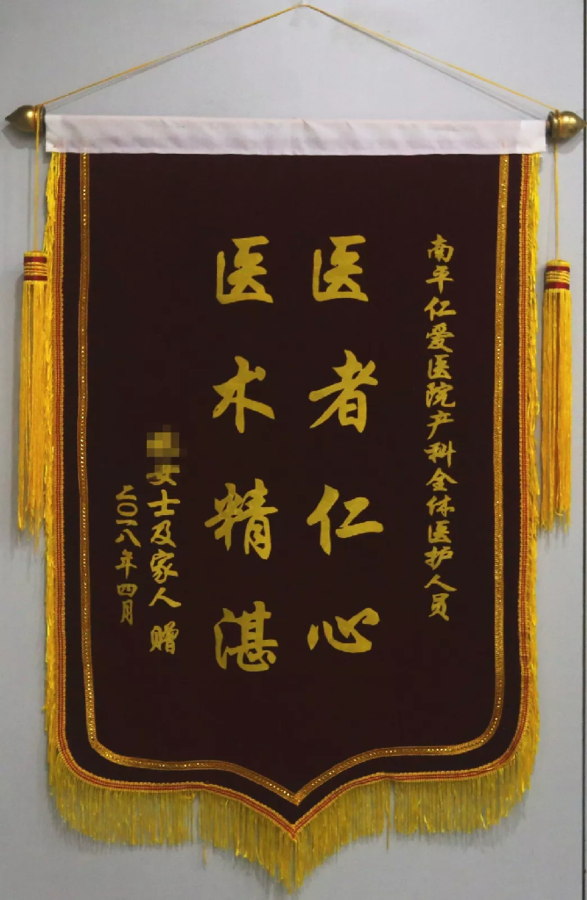 南平仁爱医院产科全体医护人员
医者仁心
医术精湛
女士及家人 赠
二〇一八年四月